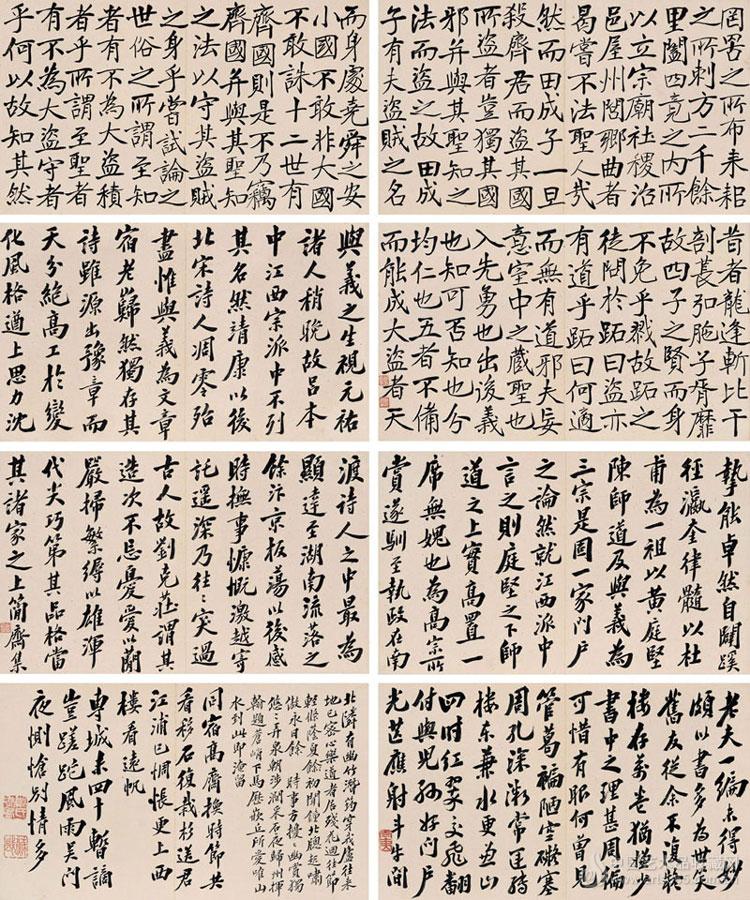 罔罟之所布耒耨
之所刺方二千餘
里闔四竟之內所
以立宗廟社稷治
邑屋州閭鄉曲者
曷嘗不法聖人哉
然而田成子一旦
殺齊君而盜其國
所盜者豈獨其國
邪并與其聖知之
法而盜之故田成
子有夫盜賊之名
而身處堯舜之安
小國不敢非大國
不敢誅十二世有
齊國則是不乃竊
齊國并與其聖知
之法以守其盜賊
之身乎嘗試論之
世俗之所謂至知
者有不為大盜積
者乎所謂至聖者
有不為大盜守者
乎何以故知其然
昔者龍逢斬比干
剖萇弘胣子胥靡
故四子之賢而身
不免乎戮故跖之
徒問於跖曰盜亦
有道乎跖曰何適
而無有道邪夫妄
意室中之藏聖也
入先勇也出後義
也知可否知也分
均仁也五者不備
而能成大盜者天
與義之生視元祐
諸人稍晚故呂本
中江西宗派中不列
其名然靖康以後
北宋詩人凋零殆
盡惟與義為文章
宿老巋然獨存其
詩雖源出豫章而
天分絕高工於變
化風格遒上思力沈
摯能卓然自闢蹊
徑瀛奎律髓以杜
甫為一祖以黃庭堅
陳師道及與義為
三宗是固一家門戶
之論然就江西派中
言之則庭堅之下師
道之上實高置一
席與媿也為高宗所
賞遂馴至執政在南
渡詩人之中最為
顯達至湖南流落之
餘汴京板蕩以後感
時撫事慷慨激越寄
託遙深乃往往突過
古人故劉克莊謂其
造次不忘憂愛以簡
嚴掃繁縟以雄渾
代尖巧第其品格當
其諸家之上簡齋集
老夫一編未得妙
頗以書多為世笑
舊友從余不
樓存萬卷猶嫌少
書中之理甚周編
可惜有眼何曾見
管葛褊陋空塞
周孔深微常運轉
樓東兼水更兼山
四時紅翠文飛翻
付與兒孫好門戶
光芒應射斗牛間
北濟有幽竹濟筠穿我廬往來
地已密心樂道者居殘花迴往節
輕條蔭夏餘初聞鐘北聽起嘯
傲永日餘時事方擾擾幽賞獨
悠悠弄泉朝澗采石夜歸州揮
翰題蒼峭下馬歷嵌丘所愛唯山
水到此即淹留
同宿高齋換時節共
看移石復栽杉送君
江浦已惆悵更上西
樓看遠帆
專城未四十暫謫
豈蹉跎風雨吳門
夜惻愴別情多